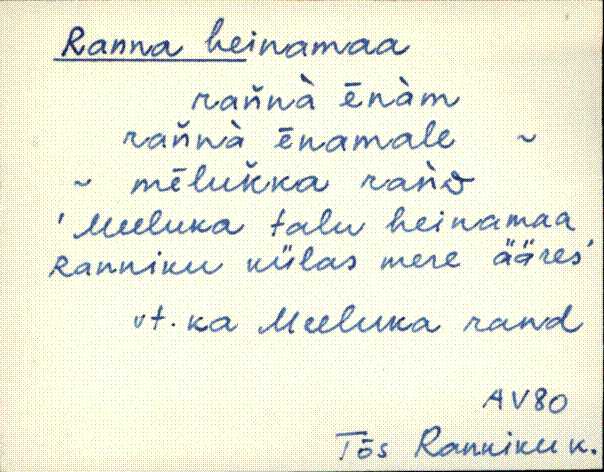 Ranna heinamaa
rañnà ēnàm
rañnà ēnamale ~
~ mēlukka
'Meeluka talu heinamaa
Ranniku külas mere ääres'
vt. ka Meeluka rand
AV80
Tõs Ranniku k.